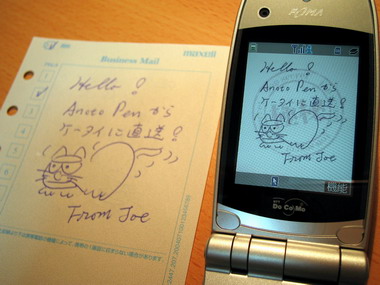 Business Mail
maxell
Hello!
Anoto Pen から
ケータイに直送!
From Joe
Hello!
Anoto Pen から
ケータイに直送!
From Joe
機能
DoCoMo